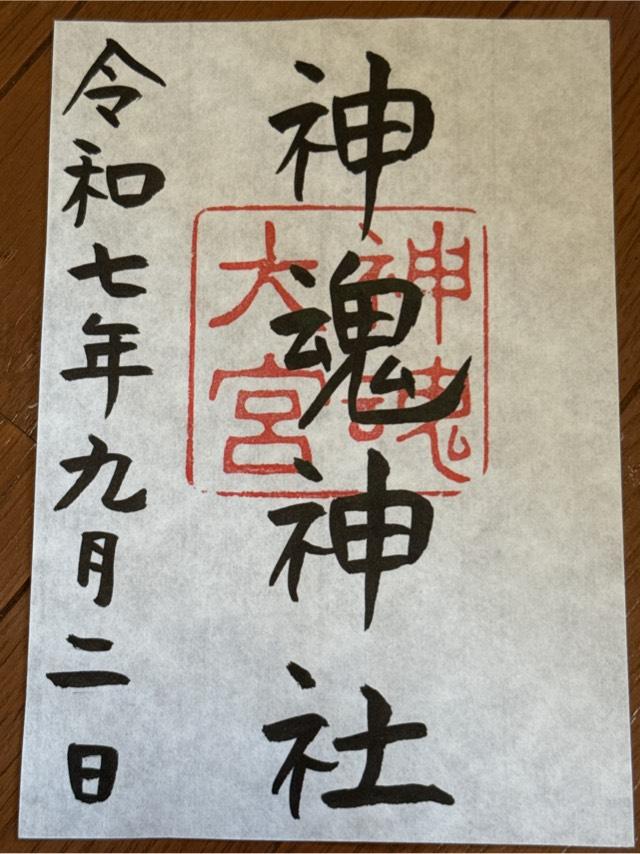 神魂神社
神魂
大宮
令和七年九月二日